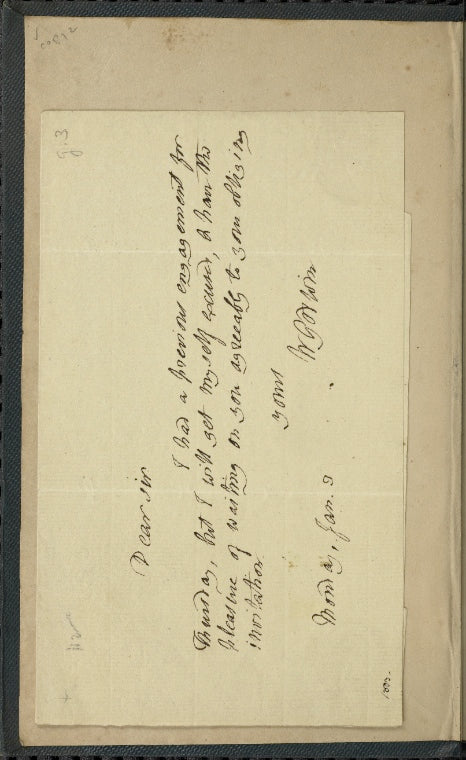 Dear Sir
I had a previous engagement for
Thursday, but I will get myself excused, to have the
pleasure of waiting on you agreeably to your obliging
invitation.
yours
W Godwin
Monday, Jan. 3
1803.
g. 3